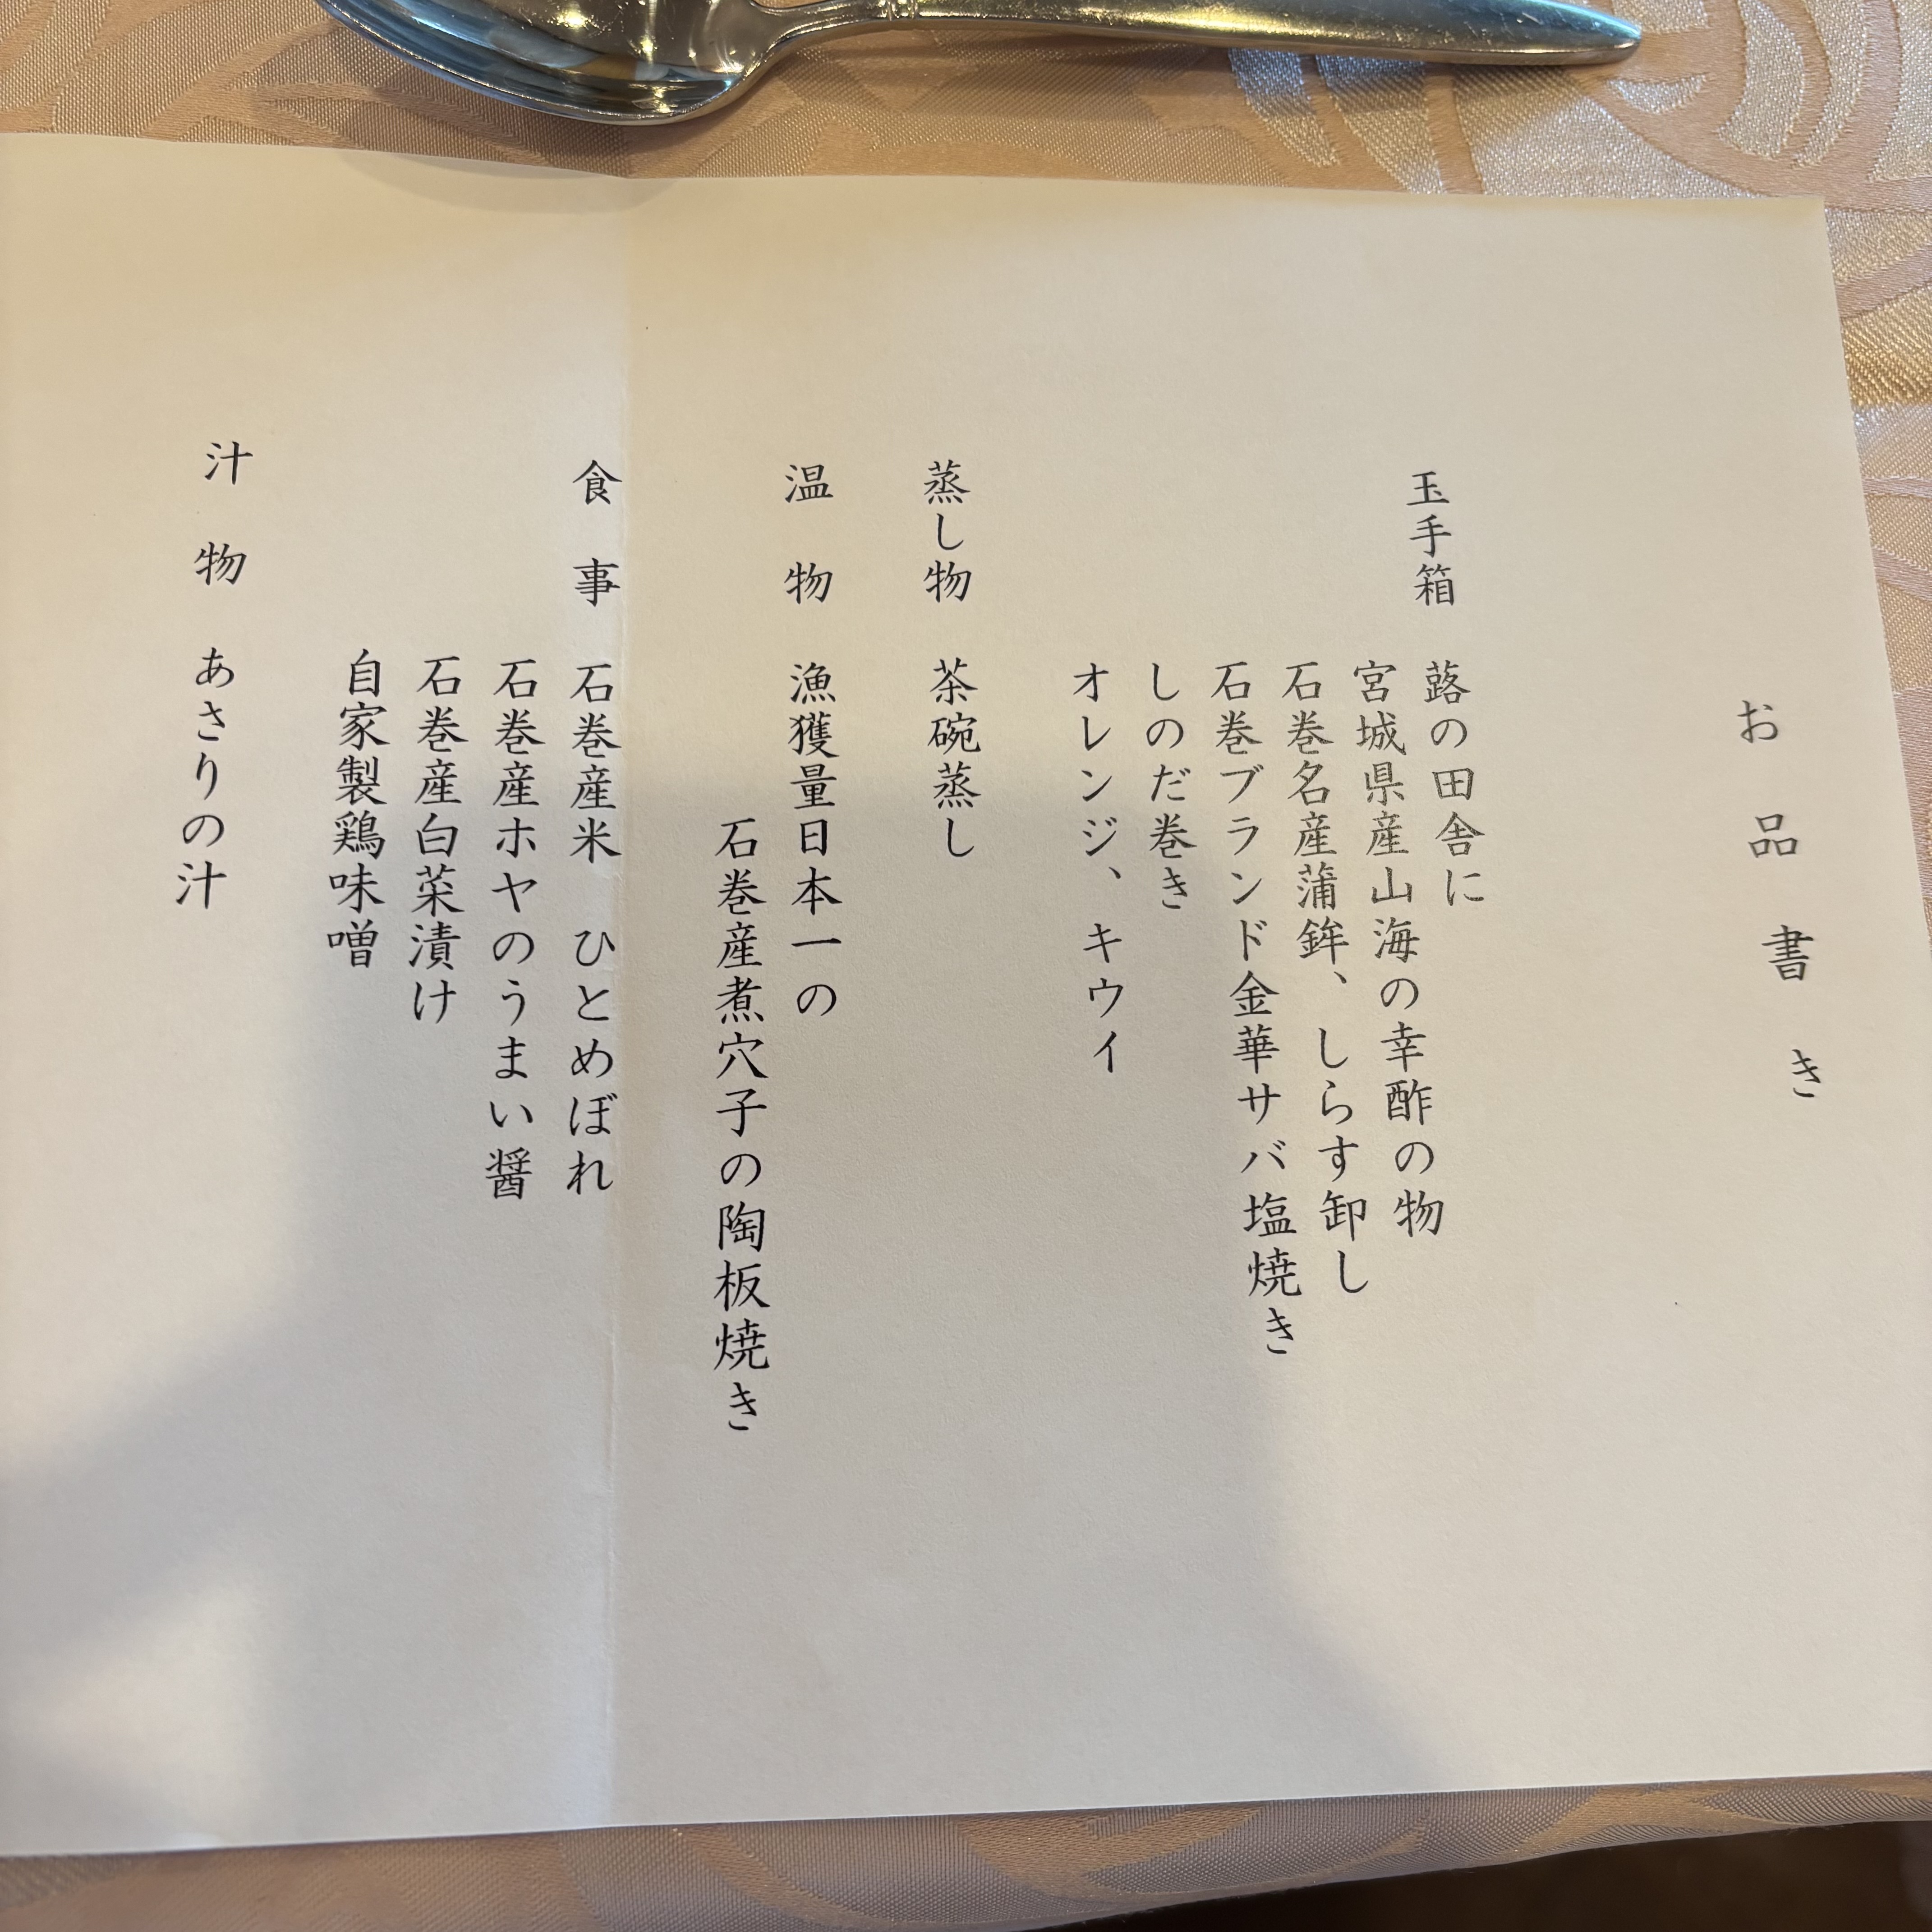 お品書き
玉手箱 蕗の田舎に
宮城県産山海の幸酢の物
石巻名産蒲鉾、しらす卸し
石巻ブランド金華サバ塩焼き
しのだ巻き
オレンジ、キウイ
蒸し物 茶碗蒸し
温物 漁獲量日本一の
石巻産煮穴子の陶板焼き
食事 石巻産米 ひとめぼれ
石巻産ホヤのうまい醤
石巻産白菜漬け
自家製鶏味噌
汁物 あさりの汁